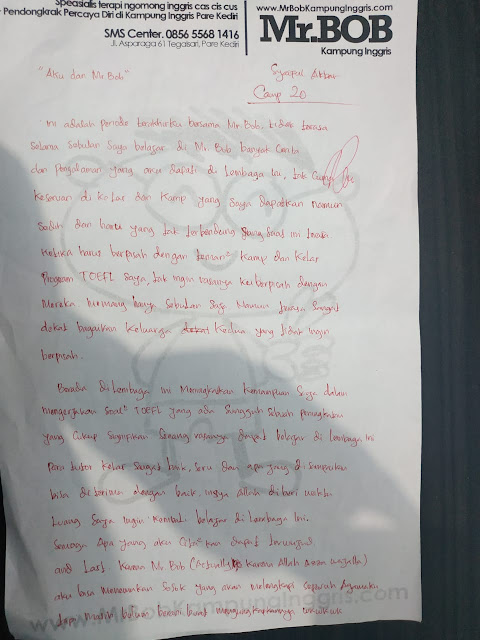 Speasialis terapi ngomong inggris cas cis cus
Pendongkrak Percaya Diri di Kampung Inggris Pare Kediri
SMS Center. 0856 5568 1416
Jl. Asparaga 61 Tegalsari, Pare Kediri
www.MrBobKampungInggris.com
Mr.BOB
Kampung Inggris
"Aku dan Mr Bob"
Syaiful Akbar
Camp 20
ini adalah periode terakhirku bersama Mr. Bob, tidak terasa
selama sebulan saya belajar di Mr Bob banyak Cerita
dan Pengalaman yang aku dapati di Lembaga ini, tak Cuma
keseruan di kelas dan Kamp yang saya dapatkan namun
sedih dan haru yang tak terbendung saat ini
ketika harus berpisah dengan teman² Kamp dan kelas
Program TOEFL saya, tak ingin rasanya berpisah dengan
Mereka memang hanya sebulan saja Namun terasa sangat
dekat bagaikan keluarga kedua yang tidak ingin
berpisah.
Berada di Lembaga ini Meningkatkan Kemampuan saya dalam
mengerjakan soal² TOEFL yang ada sungguh sebuah
yang Cukup signifikan senang rasanya dapat belajar di lembaga ini
Para tutor kelas sangat baik, seru dan apa yang di sampaikan
bisa diterima dengan baik, insya Allah diberi waktu
luang saya ingin kembali belajar di Lembaga ini.
Semoga apa yang aku dapat terwujud
and Last Karna Mr Bob (Actually Karna Allah Azza wajalla)
aku bisa menemukan Sosok yang akan melengkapi separuh Agamaku
dan masih belum berani buat mengungkapkannya wkwkwk
www.MrBobKampungInggris.com